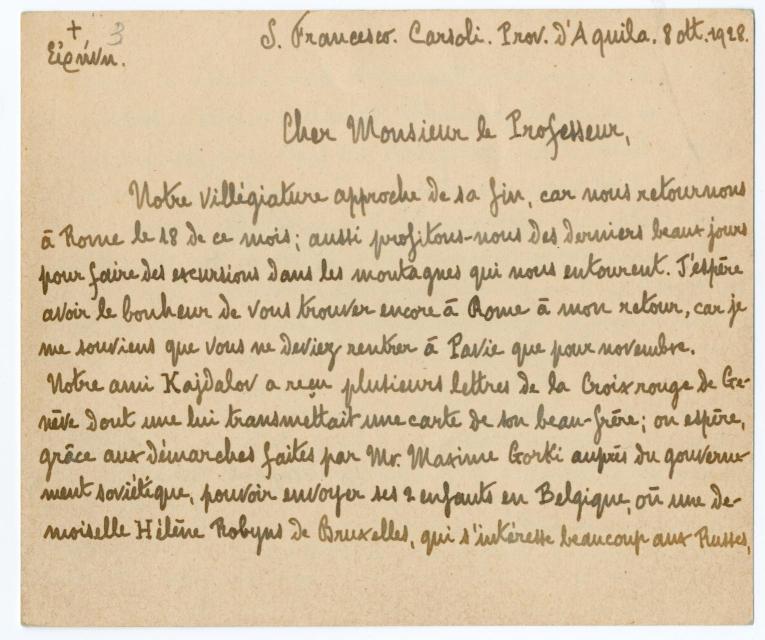 +
Εἰρήνη. 3
S. Francesco. Carsoli. Prov. d'Aquila. 8 ott. 1928.
Cher Monsieur le Professeur,
Notre villégiature approche de sa fin, car nous retournons
à Rome le 18 de ce mois; aussi profitons-nous des derniers beaux jours
pour faire des excursions dans les montagnes qui nous entourent. J'espère
avoir le bonheur de vous trouver encore à Rome à mon retour, car je
me souviens que vous ne deviez rentrer à Pavie que pour novembre.
Notre ami Kajdalov a reçu plusieurs lettres de la Croix rouge de Ge-
nève dont une lui transmettait une carte de son beau-frère; on espère,
grâce aux démarches faites par Mr. Maxime Gorki auprès du gouverne-
ment soviétique, pouvoir envoyer ses 2 enfants en Belgique, où une de-
moiselle Hélène Robyns de Bruxelles, qui s'intéresse beaucoup aux Russes,